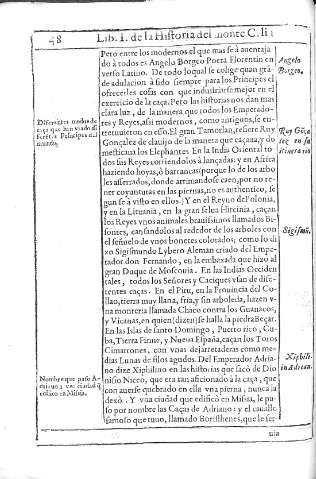 48 Lib. I. de la Historia del monte Celia
Pero entre los modernos el que mas se à auentaja
do à todos es Angelo Borgeo Poeta Florentin en
verso Latino. De todo lo qual se colige quan grã
de adulacion à sido siempre para los Principes el
ofrecerles cosas con que industriarse mejor en el
exercicio de la caça. Pero las historias nos dan mas
clara luz, de la manera que todos los Emperado-
res y Reyes, assi modernos, como antiguos, se en-
tretuuieron en esso. El gran Tamorlan, refiere Ruy
Gonçalez de clauijo de la manera que caçaua, y do
mesticaua los Elephantes. En la India Oriental to
dos sus Reyes corriendolos à lançadas: y en Africa
haziendo hoyas, ò barrancas (porque lo de los arbo
les asserrados, donde arrimandose caen, por no te-
ner coyunturas en las piernas, no es authentico, se
gun se à visto en ellos.) Y en el Reyno de Polonia,
y en la Lituania, en la gran selua Hircinia, caçan
los Reyes vnos animales brauissimos llamados Bi-
sontes, cansandolos al rededor de los arboles con
el señuelo de vnos bonetes colorados; como lo di
xo Sigismundo Lybero Aleman criado del Empera-
dor don Fernando, en la embaxada que hizo al
gran Duque de Moscouia. En las Indias Occiden
tales, todos los Señores y Caciques vsan de dife-
rentes caças. En el Piru, en la Prouincia del Co-
llao, tierra muy llana, fria, y sin arboleda, hazen v-
na monteria llamada Chaco contra los Guanacos,
y Vicunas, en quien (dizen) se halla la piedra Beçar.
En las Islas de santo Domingo, Puerto rico, Cu-
ba, Tierra Firme, y Nueua España, caçan los Toros
Cimarrones, con vnas dejarretaderas como me-
dias Lunas de filos agudos. Del Emperador Adria-
no dize Xiphilino en las historias que sacò de Dio
nisio Niceo, que era tan aficionado à la caça, que
con auerse quebrado en ella vna pierna, nunca la
dexò. Y vna ciudad que edificò en Misia, le pu-
so por nombre las Caças de Adriano: y el cauallo
famoso que tuuo, llamado Boristhenes, que le ser-
uia
Diferentes modos de
caça que han vsado
los Principes del
mundo.
Nombre que puso A-
driano à vna ciudad q̃
edificò en Misia.
Angelo
Borgeo.
Ruy Gõça
lez en su
itinerario
Sigismũ.
Xiphili-
in Adrian.